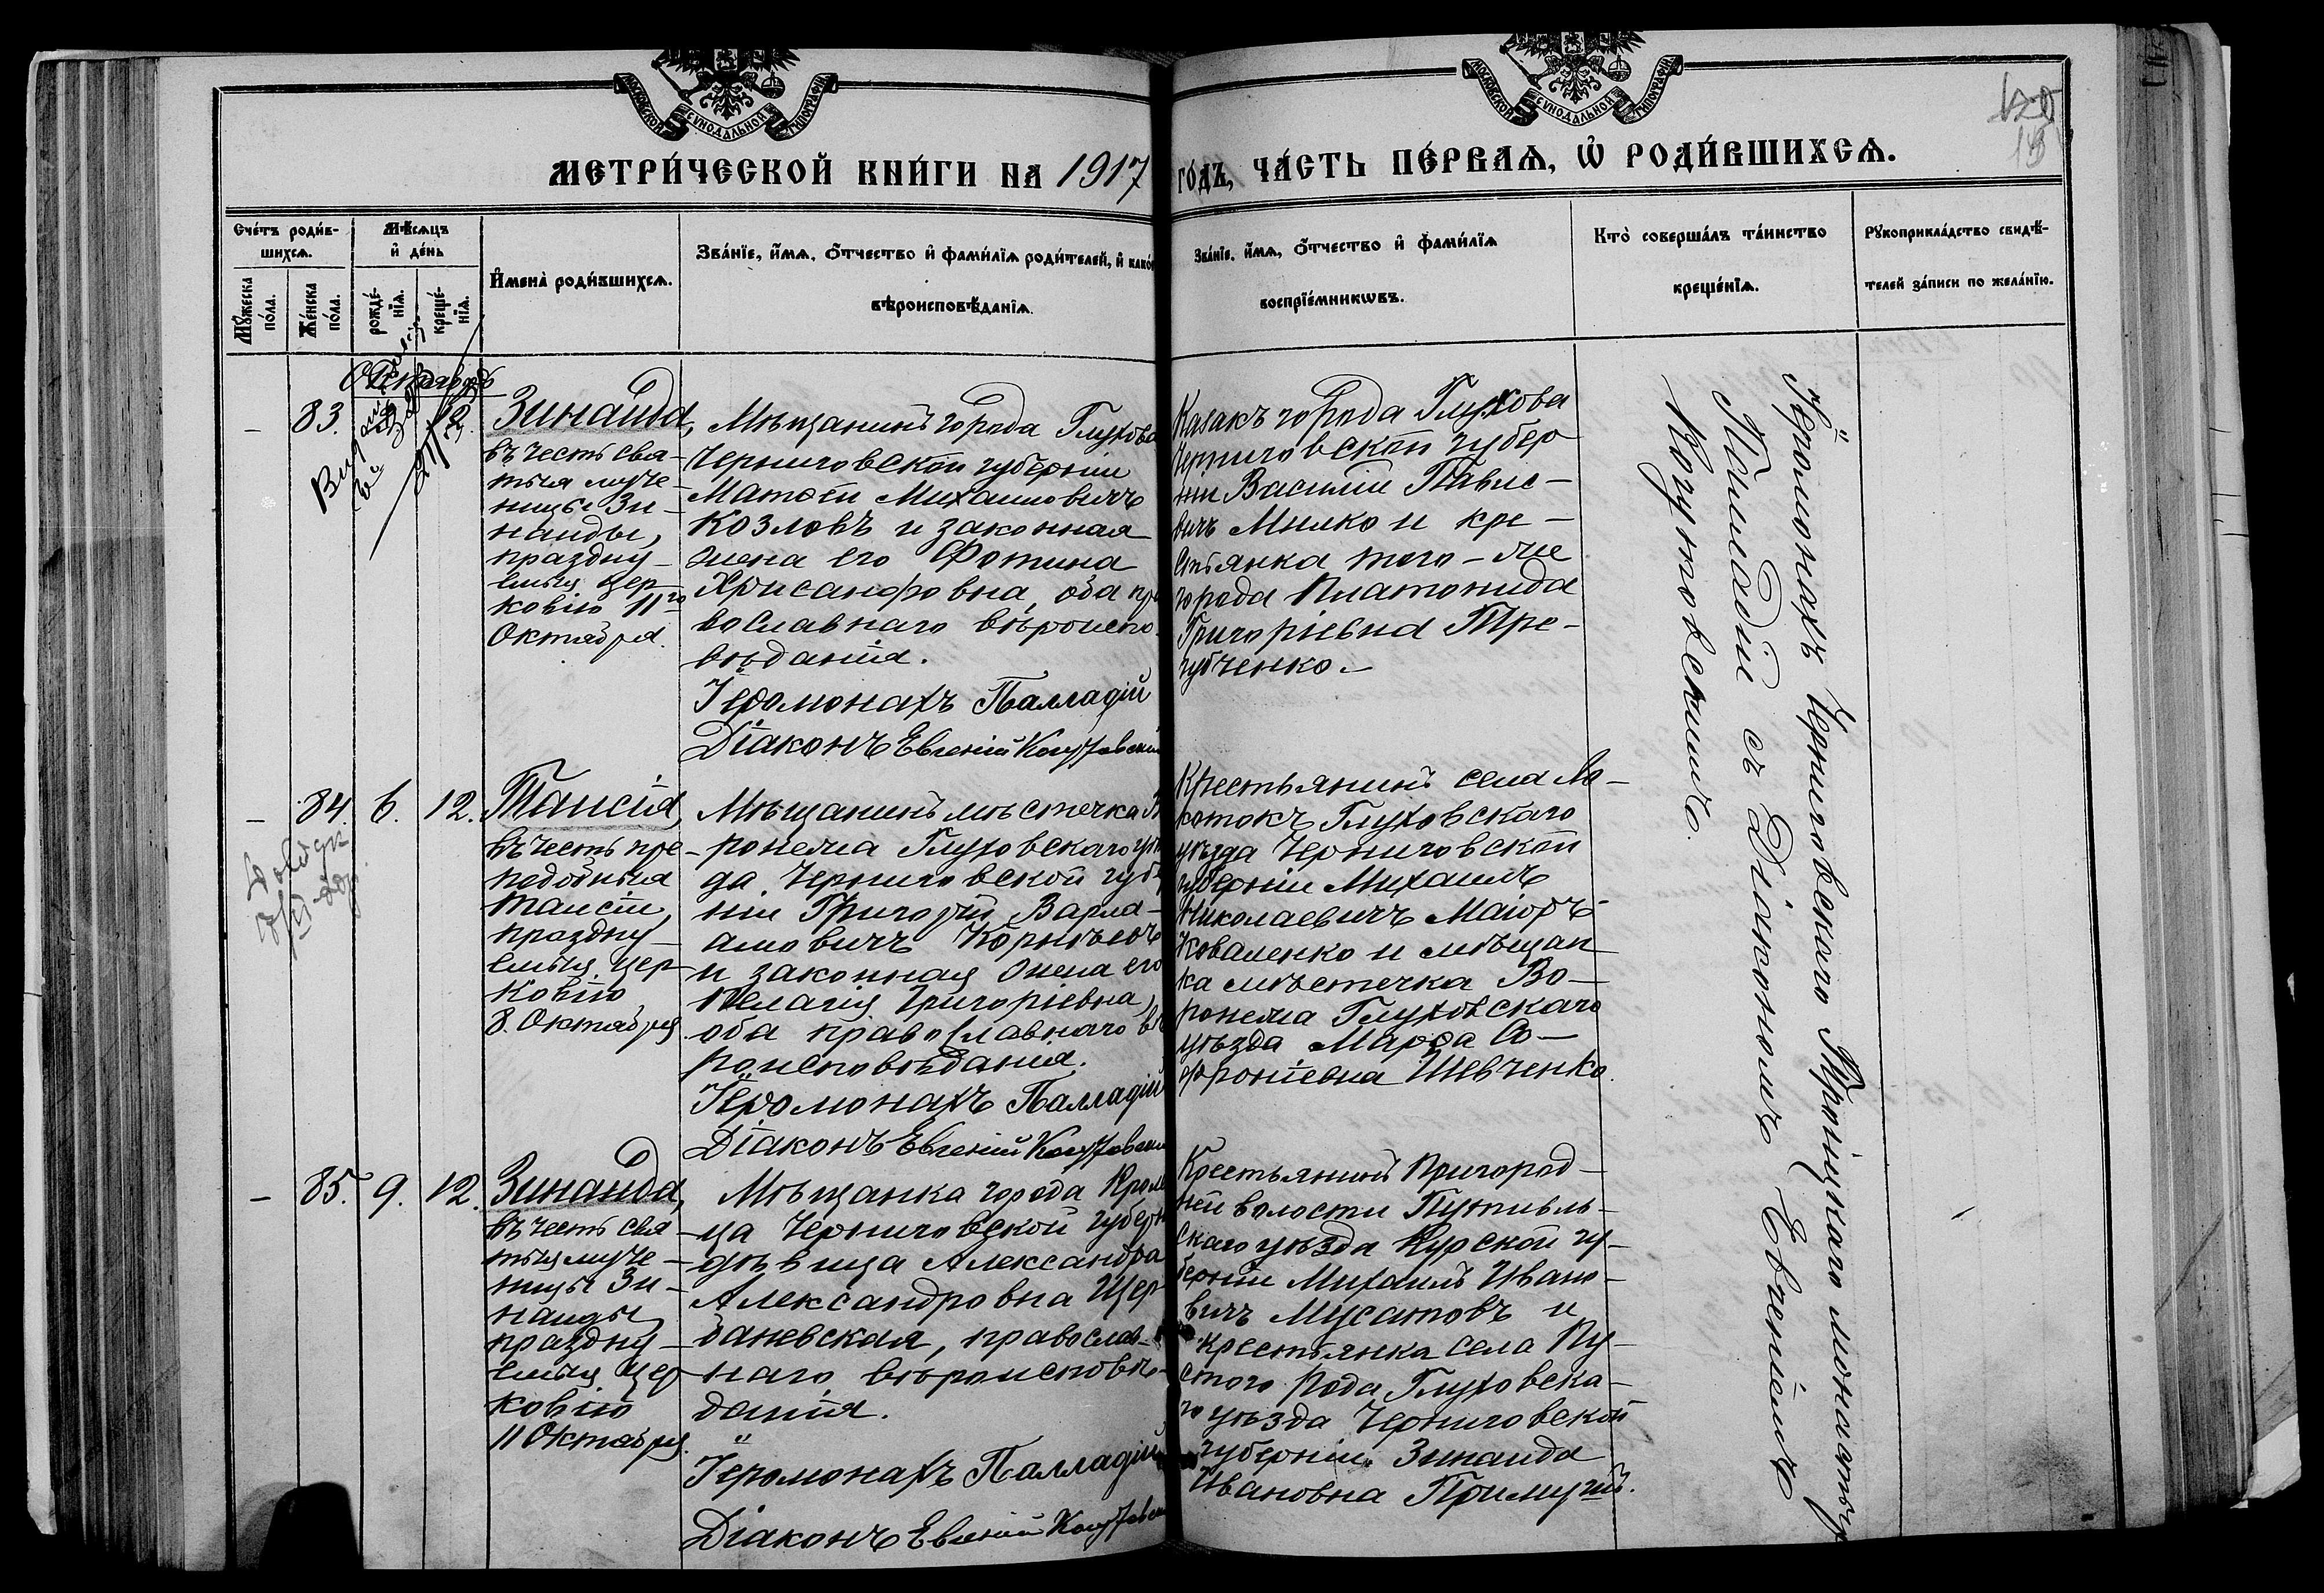 МОСКОВСКОЙ СѴНОДАЛЬНОЙ ТИПОГРАФІИ
МОСКОВСКОЙ СѴНОДАЛЬНОЙ ТИПОГРАФІИ
МЕТРИ́ЧЕСКОЙ КНИ́ГИ НА 1917 ГО́ДЪ, ЧА́СТЬ ПЕ́РВАѦ, Ѡ҆ РОДИ́ВШИХСѦ.
Сче́тъ роди́в-
шихсѧ.
Мꙋ́жеска по́ла.
Же́нска по́ла.
Мѣ́сѧцъ
и҆ де́нь
рожде́-
нїѧ.
креще́-
нїѧ.
И҆мена̀ роди́вшихсѧ.
Зва́нїе, и҆́мѧ, ѻ҆́тчество и҆ фами́лїѧ роди́телей, и҆ како́
вѣроисповѣ́данїѧ.
Зва́нїе, и҆́мѧ, ѻ҆́тчество и҆ фами́лїѧ
воспрїе́мникѡвъ.
Кто̀ соверша́лъ та́инство
креще́нїѧ.
Рꙋкоприкла́дство свидѣ́-
телей за́писи по жела́нїю.
Октябрь
– 83. 12.
Зинаида,
въ честь свя-
тыя муче-
ницы Зи-
наиды,
праздну-
емыя цер-
ковію 11го
Октября.
Мѣщанинъ города Глухова
Черниговской губерніи
Матѳей Михаиловичъ
Козловъ и законная
жена его Фотина
Хрисанфовна, оба пра
вославнаго вѣроиспо-
вѣданія.
Іеромонахъ Палладій
Діаконъ Евгеній
Казакъ города Глухова
Черниговской губер
ніи Василій Павло-
вичъ Милко и кре-
стьянка того-же
города Платонида
Григоріевна Тре-
губченко.
– 84. 6. 12.
Таисія,
въ честь пре-
подобныя
Таисіи,
праздну-
емыя цер-
ковію
8. Октября.
Мѣщанинъ мѣстечка В
ронежа Глуховскаго уѣз
да Черниговской губер
ніи Григорій Варла-
амовичъ Корнѣевъ
и законная жена его
Пелагія Григоріевна,
оба православнаго вѣ
роисповѣданія.
Іеромонахъ Палладій
Діаконъ Евгеній
Крестьянинъ села Ло-
котокъ Глуховскаго
уѣзда Черниговской
губерніи Михаилъ
Николаевичъ Маіоръ-
Коваленко и мѣщан-
ка мѣстечка Во-
ронежа Глуховскаго
уѣзда Марѳа Со-
фроніевна Шевченко.
– 85. 9. 12.
Зинаида,
въ честь свя-
тыя муче-
ницы Зи-
наиды
праздну-
емыя цер-
ковію
11 Октября.
Мѣщанка города Кроле
ца Черниговской губерн
дѣвица Александра
Александровна Щер-
баневская, православ-
наго вѣроисповѣ-
данія.
Іеромонахъ Палладій
Діаконъ Евгеній
Крестьянинъ Пригород-
ней волости Путивль-
скаго уѣзда Курской гу-
берніи Михаилъ Ивано-
вичъ Мусатовъ и
крестьянка села Пу-
стого Рода Глуховска-
го уѣзда Черниговской
губерніи Зинаида
Ивановна Примугій.
Іеромонахъ Черниговскаго Троицкаго монастыря
Палладій съ Діакономъ Евгеніемъ